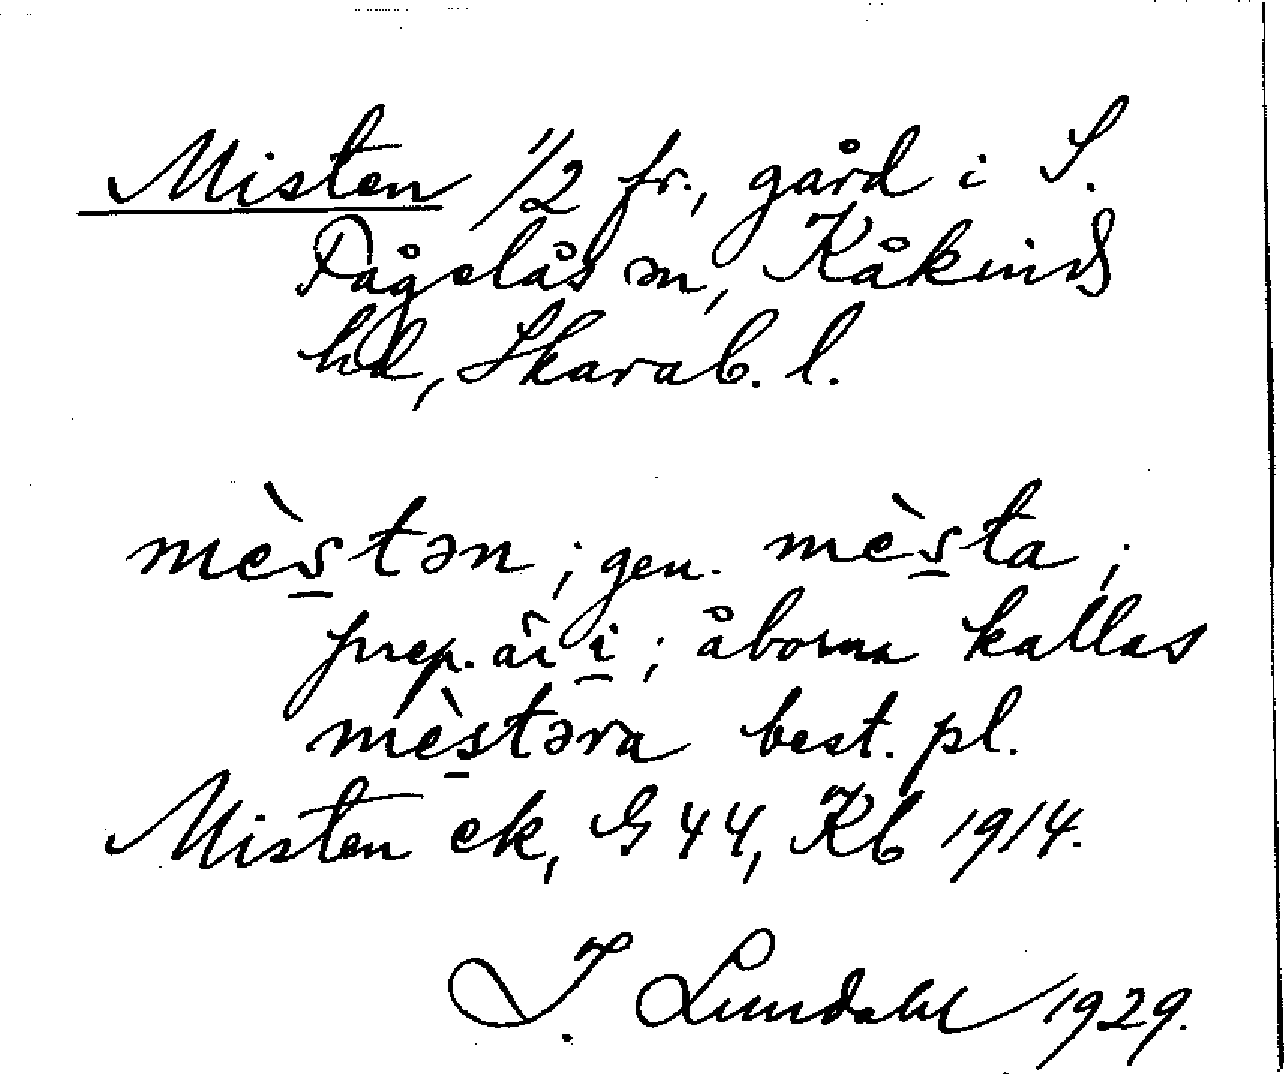 Misten 1/2 fr., gård i S.
Fågelås sn, Kåkinds
hd, Skarab. l.
mèstən ; gen. mèsta ;
prep. är i ; åborna kallas
mèstəra best. pl.
Misten ek, G 44, Kb 1914.
I. Lundahl 1929.